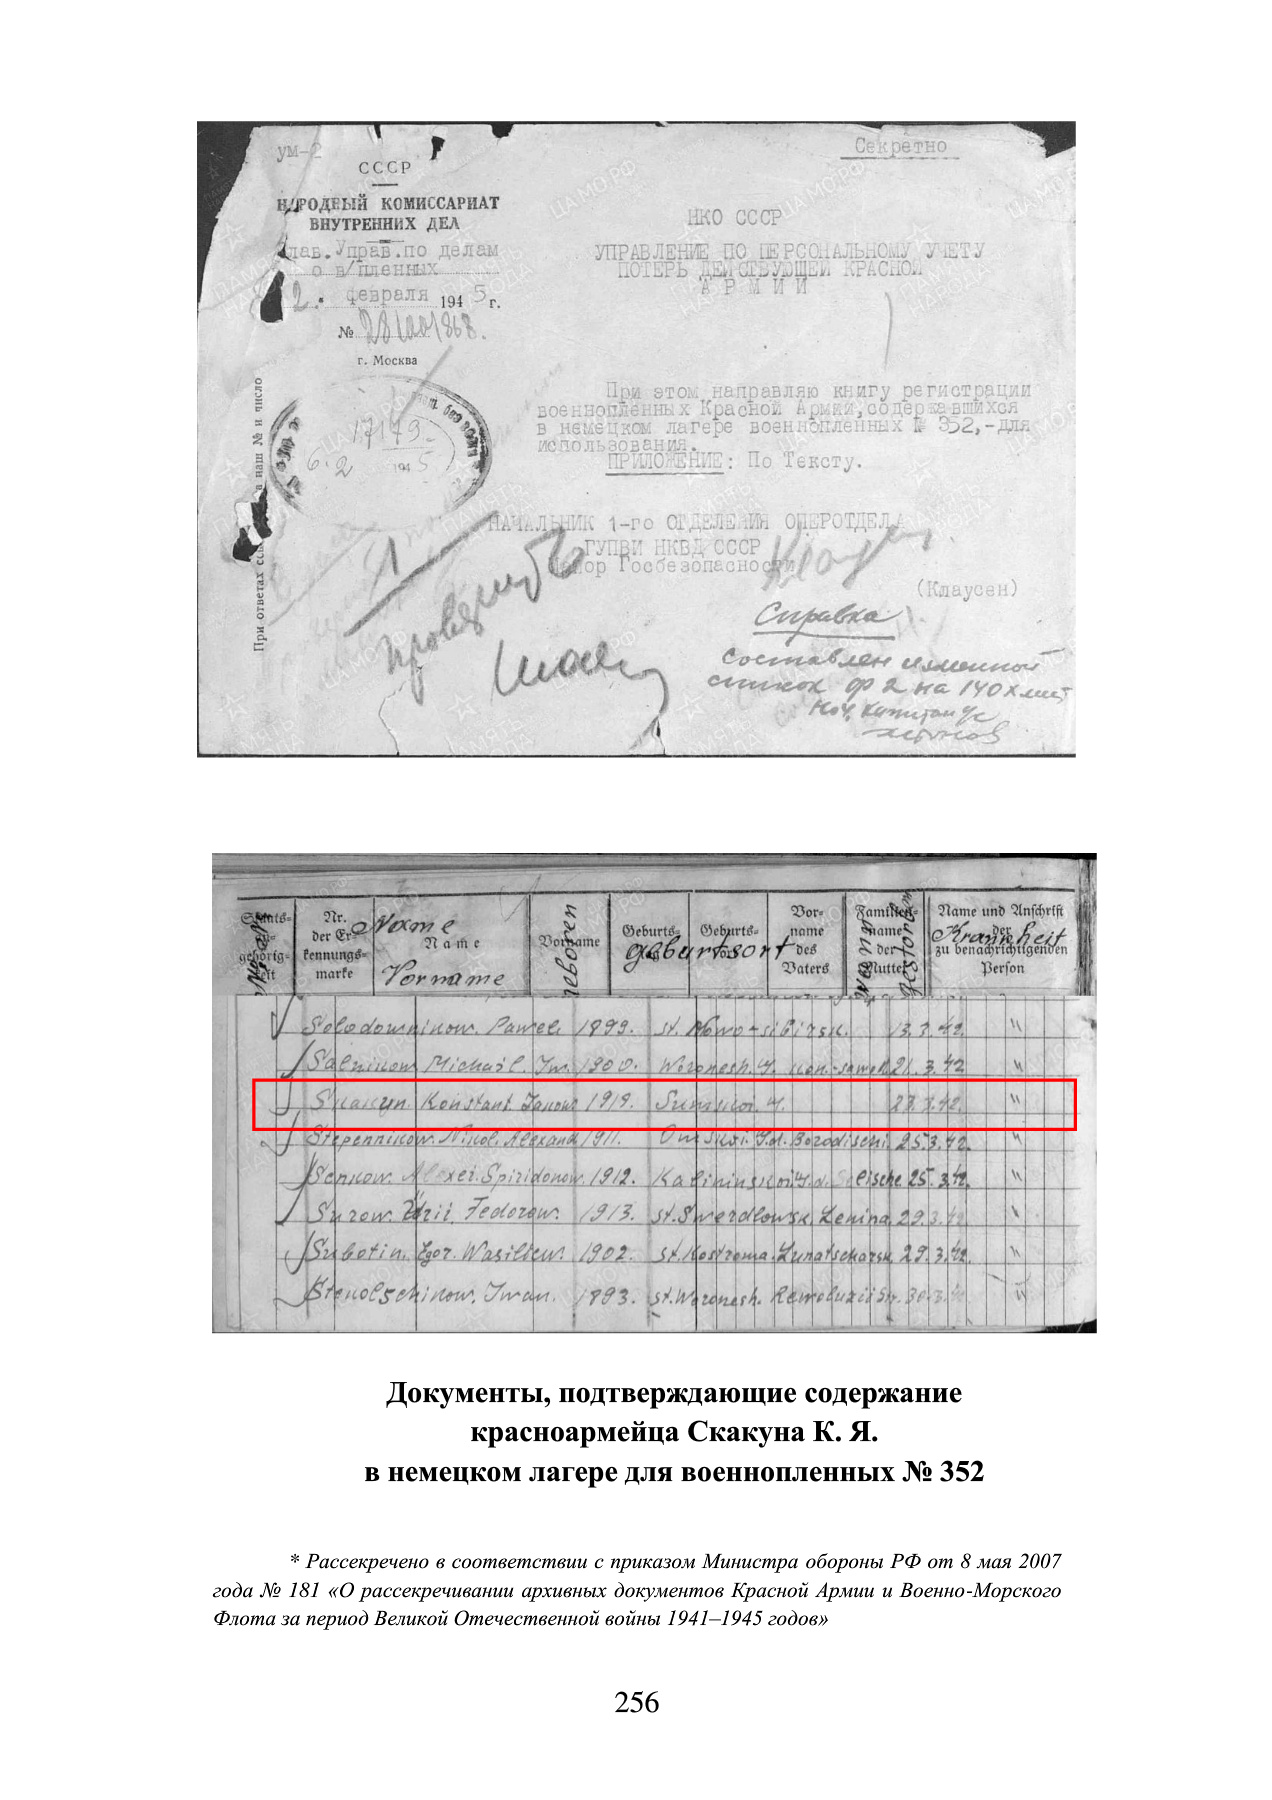 ум-2
Секретно
СССР
НАРОДНЫЙ КОМИССАРИАТ
ВНУТРЕННИХ ДЕЛ
Глав. Управ. по делам
о в/пленных
2. февраля 1945 г.
№ 28/00/868.
г. Москва
НКО СССР
УПРАВЛЕНИЕ ПО ПЕРСОНАЛЬНОМУ УЧЕТУ
ПОТЕРЬ ДЕЙСТВУЮЩЕЙ КРАСНОЙ
АРМИИ
При этом направляю книгу регистрации
военнопленных Красной Армии, содержавшихся
в немецком лагере военнопленных № 352,-для
использования.
ПРИЛОЖЕНИЕ: По Тексту.
17179
6.2 1945
При ответах наш № и число
НАЧАЛЬНИК 1-го ОТДЕЛЕНИЯ ОПЕРОТДЕЛА
ГУПВИ НКВД СССР
Майор Госбезопасности
(Клаусен)
Справка
Составлен именной
список ф 2 на 140
Нач.
Nr.
der Er-
kennungs-
marke
Name
Name
Vorname
Vorname
geboren
Geburts-
Geburts-
geburtsort
Vor-
name
des
Vaters
Familien-
name
der
Mutter
wann
gestorben
Name und Anschrift
der
zu benachrichtigenden
Person
Krankheit
Solodowninow. Pawel 1899. st. Nowo-sibirsk. 13.3.42. "
Salnikow Michail. Iw. 1900. Woronesh. 21.3.42 "
Skakun. Konstant. Jakow 1919. Sumskoi. 23.3.42. "
Stepennikow. Nikol. Alexand 1911. Omskoi. Borodischi. 25.3.42. "
Senkow. Alexei. Spiridonow. 1912. Kalininskoi 25.3.42. "
Surow. Jurii. Fedorow. 1913. st. Swerdlowsk. Lenina. 29.3.42. "
Subotin. Egor. Wasiliew. 1902. st. Kostroma. Lunatscharsk. 29.3.42. "
Iwan. 1893. st. Woronesh. 30.3.42 "
Документы, подтверждающие содержание
красноармейца Скакуна К. Я.
в немецком лагере для военнопленных № 352
* Рассекречено в соответствии с приказом Министра обороны РФ от 8 мая 2007
года № 181 «О рассекречивании архивных документов Красной Армии и Военно-Морского
Флота за период Великой Отечественной войны 1941–1945 годов»
256